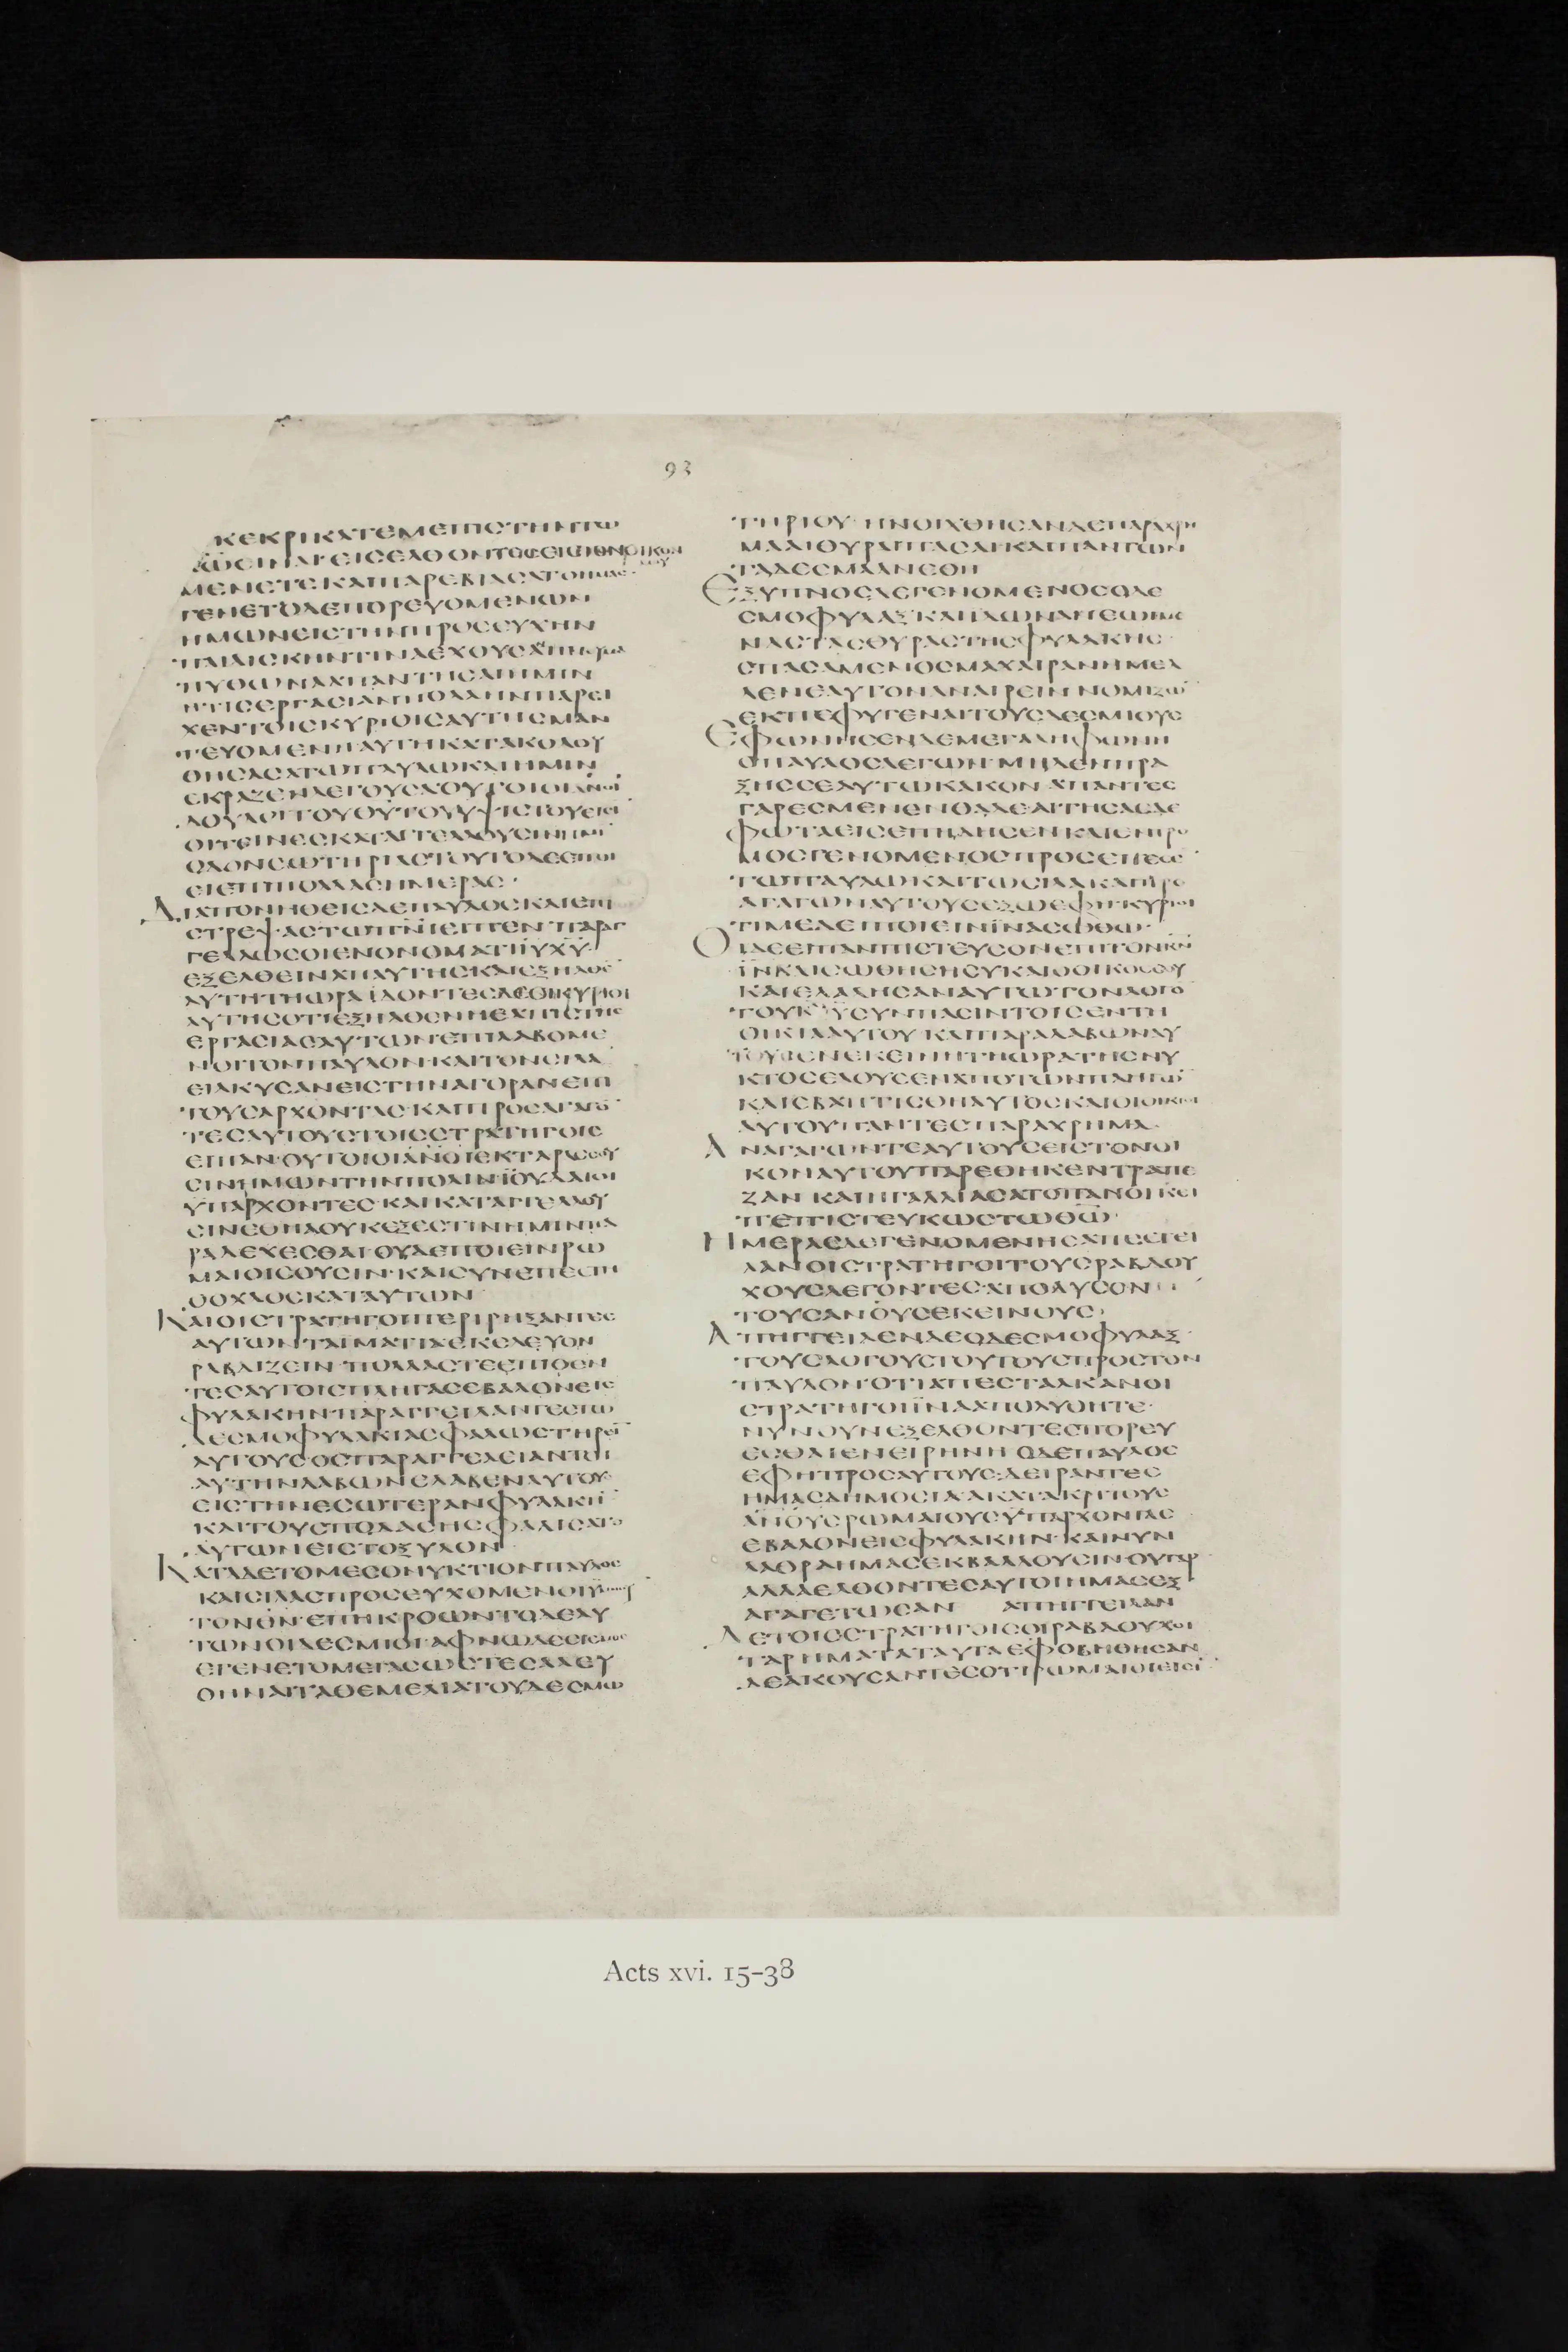 93
ΚΕΚΡΙΚΑΤΕΜΕΠΙΣΤΗΝΤΩ
ΜΕΝΕΤΕΚΑΙΠΑΡΕΒΙΑΣΑΤΟ
ΓΕΝΕΤΟΔΕΠΟΡΕΥΟΜΕΝΩΝ
ΗΜΩΝΕΙΣΤΗΝΠΡΟΣΕΥΧΗΝ
ΠΑΙΔΙΣΚΗΝΤΙΝΑΕΧΟΥΣΑ
ΠΥΘΩΝΑΑΠΑΝΤΗΣΑΙΗΜΙΝ
ΗΤΙΣΕΡΓΑΣΙΑΝΠΟΛΛΗΝΠΑΡΕΙ
ΧΕΝΤΟΙΣΚΥΡΙΟΙΣΑΥΤΗΣΜΑΝ
ΤΕΥΟΜΕΝΗΑΥΤΗΚΑΤΑΚΟΛΟΥ
ΘΗΣΑΣΑΤΩΠΑΥΛΩΚΑΙΗΜΙΝ
ΕΚΡΑΖΕΝΛΕΓΟΥΣΑΟΥΤΟΙΟΙΑΝΟΙ
ΔΟΥΛΟΙΤΟΥΘΥΤΟΥΥΨΙΣΤΟΥΕΙΣΙ
ΟΙΤΕΙΝΕΣΚΑΤΑΓΓΕΛΛΟΥΣΙΝΗΜΙ
ΟΔΟΝΣΩΤΗΡΙΑΣΤΟΥΤΟΔΕΕΠΟΙ
ΕΙΕΠΙΠΟΛΛΑΣΗΜΕΡΑΣ·
ΔΙΑΠΟΝΗΘΕΙΣΔΕΠΑΥΛΟΣΚΑΙΕΠΙ
ΣΤΡΕΨΑΣΤΩΠΝΙΕΙΠΕΝΠΑΡΑΓ
ΓΕΛΛΩΣΟΙΕΝΟΝΟΜΑΤΙΙΥΧΥ
ΕΞΕΛΘΕΙΝΑΠΑΥΤΗΣΚΑΙΕΞΗΛΘΕ
ΑΥΤΗΤΗΩΡΑΙΔΟΝΤΕΣΔΕΟΙΚΥΡΙΟΙ
ΑΥΤΗΣΟΤΙΕΞΗΛΘΕΝΗΕΛΠΙΣΤΗΣ
ΕΡΓΑΣΙΑΣΑΥΤΩΝΕΠΙΛΑΒΟΜΕ
ΝΟΙΤΟΝΠΑΥΛΟΝΚΑΙΤΟΝΣΙΛΑ
ΕΙΛΚΥΣΑΝΕΙΣΤΗΝΑΓΟΡΑΝΕΠΙ
ΤΟΥΣΑΡΧΟΝΤΑΣΚΑΙΠΡΟΣΑΓΑΓΟ
ΤΕΣΑΥΤΟΥΣΤΟΙΣΣΤΡΑΤΗΓΟΙΣ
ΕΙΠΑΝ·ΟΥΤΟΙΟΙΑΝΟΙΕΚΤΑΡΑΣΣΟΥ
ΣΙΝΗΜΩΝΤΗΝΠΟΛΙΝΙΟΥΔΑΙΟΙ
ΥΠΑΡΧΟΝΤΕΣΚΑΙΚΑΤΑΓΓΕΛΛΟΥ
ΣΙΝΕΘΗΑΟΥΚΕΞΕΣΤΙΝΗΜΙΝΠΑ
ΡΑΔΕΧΕΣΘΑΙΟΥΔΕΠΟΙΕΙΝΡΩ
ΜΑΙΟΙΣΟΥΣΙΝ·ΚΑΙΣΥΝΕΠΕΣΤΗ
ΟΟΧΛΟΣΚΑΤΑΥΤΩΝ
ΚΑΙΟΙΣΤΡΑΤΗΓΟΙΠΕΡΙΡΗΞΑΝΤΕΣ
ΑΥΤΩΝΤΑΙΜΑΤΙΑΕΚΕΛΕΥΟΝ
ΡΑΒΔΙΖΕΙΝ·ΠΟΛΛΑΣΤΕΕΠΙΘΕΝ
ΤΕΣΑΥΤΟΙΣΠΛΗΓΑΣΕΒΑΛΟΝΕΙΣ
ΦΥΛΑΚΗΝΠΑΡΑΓΓΕΙΛΑΝΤΕΣΤΩ
ΔΕΣΜΟΦΥΛΑΚΙΑΣΦΑΛΩΣΤΗΡΕΙ
ΑΥΤΟΥΣ·ΟΣΠΑΡΑΓΓΕΛΕΙΑΝΤΟΙ
ΑΥΤΗΝΛΑΒΩΝΕΛΑΒΕΝΑΥΤΟΥΣ
ΕΙΣΤΗΝΕΣΩΤΕΡΑΝΦΥΛΑΚΗ
ΚΑΙΤΟΥΣΠΟΔΑΣΗΣΦΑΛΙΣΑΤΟ
ΑΥΤΩΝΕΙΣΤΟΞΥΛΟΝ
ΚΑΤΑΔΕΤΟΜΕΣΟΝΥΚΤΙΟΝΠΑΥΛΟΣ
ΚΑΙΣΙΛΑΣΠΡΟΣΕΥΧΟΜΕΝΟΙ
ΤΟΝΘΝ·ΕΠΗΚΡΟΩΝΤΟΔΕΑΥ
ΤΩΝΟΙΔΕΣΜΙΟΙ·ΑΦΝΩΔΕΣΕΙΣΜΟΣ
ΕΓΕΝΕΤΟΜΕΓΑΣΩΣΤΕΣΑΛΕΥ
ΘΗΝΑΙΤΑΘΕΜΕΛΙΑΤΟΥΔΕΣΜΩ
ΤΗΡΙΟΥ·ΗΝΟΙΧΘΗΣΑΝΔΕΠΑΡΑΧΡΗ
ΜΑΑΙΘΥΡΑΙΠΑΣΑΙΚΑΙΠΑΝΤΩΝ
ΤΑΔΕΣΜΑΑΝΕΘΗ
ΕΞΥΠΝΟΣΔΕΓΕΝΟΜΕΝΟΣΟΔΕ
ΣΜΟΦΥΛΑΞ·ΚΑΙΙΔΩΝΑΝΕΩΓΜΕ
ΝΑΣΤΑΣΘΥΡΑΣΤΗΣΦΥΛΑΚΗΣ·
ΣΠΑΣΑΜΕΝΟΣΜΑΧΑΙΡΑΝΗΜΕΛ
ΛΕΝΕΑΥΤΟΝΑΝΑΙΡΕΙΝΝΟΜΙΖΩ
ΕΚΠΕΦΥΓΕΝΑΙΤΟΥΣΔΕΣΜΙΟΥΣ
ΕΦΩΝΗΣΕΝΔΕΜΕΓΑΛΗΦΩΝΗ
ΟΠΑΥΛΟΣΛΕΓΩΝ·ΜΗΔΕΝΠΡΑ
ΞΗΣΣΕΑΥΤΩΚΑΚΟΝΑΠΑΝΤΕΣ
ΓΑΡΕΣΜΕΝΕΝΘΑΔΕ·ΑΙΤΗΣΑΣΔΕ
ΦΩΤΑΕΙΣΕΠΗΔΗΣΕΝΚΑΙΕΝΤΡΟ
ΜΟΣΓΕΝΟΜΕΝΟΣΠΡΟΣΕΠΕΣΕ
ΤΩΠΑΥΛΩΚΑΙΤΩΣΙΛΑΚΑΙΠΡΟ
ΑΓΑΓΩΝΑΥΤΟΥΣΕΞΩΕΦΗ·ΚΥΡΙΟΙ
ΤΙΜΕΔΕΙΠΟΙΕΙΝΙΝΑΣΩΘΩ·
ΟΙΔΕΕΙΠΑΝΠΙΣΤΕΥΣΟΝΕΠΙΤΟΝΚΝ
ΙΝΚΑΙΣΩΘΗΣΗΣΥΚΑΙΟΟΙΚΟΣΣΟΥ
ΚΑΙΕΛΑΛΗΣΑΝΑΥΤΩΤΟΝΛΟΓΟ
ΟΙΚΙΑΑΥΤΟΥ·ΚΑΙΠΑΡΑΛΑΒΩΝΑΥ
ΤΟΥΣΕΝΕΚΕΙΝΗΤΗΩΡΑΤΗΣΝΥ
ΚΤΟΣΕΛΟΥΣΕΝΑΠΟΤΩΝΠΛΗΓΩ
ΚΑΙΕΒΑΠΤΙΣΘΗΑΥΤΟΣΚΑΙΟΙΟΙΚΙΟΙ
ΑΥΤΟΥΠΑΝΤΕΣΠΑΡΑΧΡΗΜΑ
ΑΝΑΓΑΓΩΝΤΕΑΥΤΟΥΣΕΙΣΤΟΝΟΙ
ΚΟΝΑΥΤΟΥΠΑΡΕΘΗΚΕΝΤΡΑΠΕ
ΖΑΝΚΑΙΗΓΑΛΛΙΑΣΑΤΟΠΑΝΟΙΚΕΙ
ΠΕΠΙΣΤΕΥΚΩΣΤΩΘΩ·
ΗΜΕΡΑΣΔΕΓΕΝΟΜΕΝΗΣΑΠΕΣΤΕΙ
ΛΑΝΟΙΣΤΡΑΤΗΓΟΙΤΟΥΣΡΑΒΔΟΥ
ΧΟΥΣΛΕΓΟΝΤΕΣ·ΑΠΟΛΥΣΟΝ
ΤΟΥΣΑΝΟΥΣΕΚΕΙΝΟΥΣ
ΑΠΗΓΓΕΙΛΕΝΔΕΟΔΕΣΜΟΦΥΛΑΞ
ΤΟΥΣΛΟΓΟΥΣΤΟΥΤΟΥΣΠΡΟΣΤΟΝ
ΠΑΥΛΟΝ·ΟΤΙΑΠΕΣΤΑΛΚΑΝΟΙ
ΣΤΡΑΤΗΓΟΙΙΝΑΑΠΟΛΥΘΗΤΕ·
ΝΥΝΟΥΝΕΞΕΛΘΟΝΤΕΣΠΟΡΕΥ
ΕΣΘΑΙΕΝΕΙΡΗΝΗΟΔΕΠΑΥΛΟΣ
ΕΦΗΠΡΟΣΑΥΤΟΥΣ·ΔΕΙΡΑΝΤΕΣ
ΗΜΑΣΔΗΜΟΣΙΑΑΚΑΤΑΚΡΙΤΟΥΣ
ΑΝΟΥΣΡΩΜΑΙΟΥΣΥΠΑΡΧΟΝΤΑΣ
ΕΒΑΛΟΝΕΙΣΦΥΛΑΚΗΝ·ΚΑΙΝΥΝ
ΛΑΘΡΑΗΜΑΣΕΚΒΑΛΛΟΥΣΙΝ·ΟΥΓΑΡ
ΑΛΛΑΕΛΘΟΝΤΕΣΑΥΤΟΙΗΜΑΣΕΞ
ΑΓΑΓΕΤΩΣΑΝ ΑΠΗΓΓΕΙΛΑΝ
ΔΕΤΟΙΣΣΤΡΑΤΗΓΟΙΣΟΙΡΑΒΔΟΥΧΟΙ
ΤΑΡΗΜΑΤΑΤΑΥΤΑΕΦΟΒΗΘΗΣΑΝ
ΔΕΑΚΟΥΣΑΝΤΕΣΟΤΙΡΩΜΑΙΟΙΕΙΣΙ
Acts xvi. 15–38